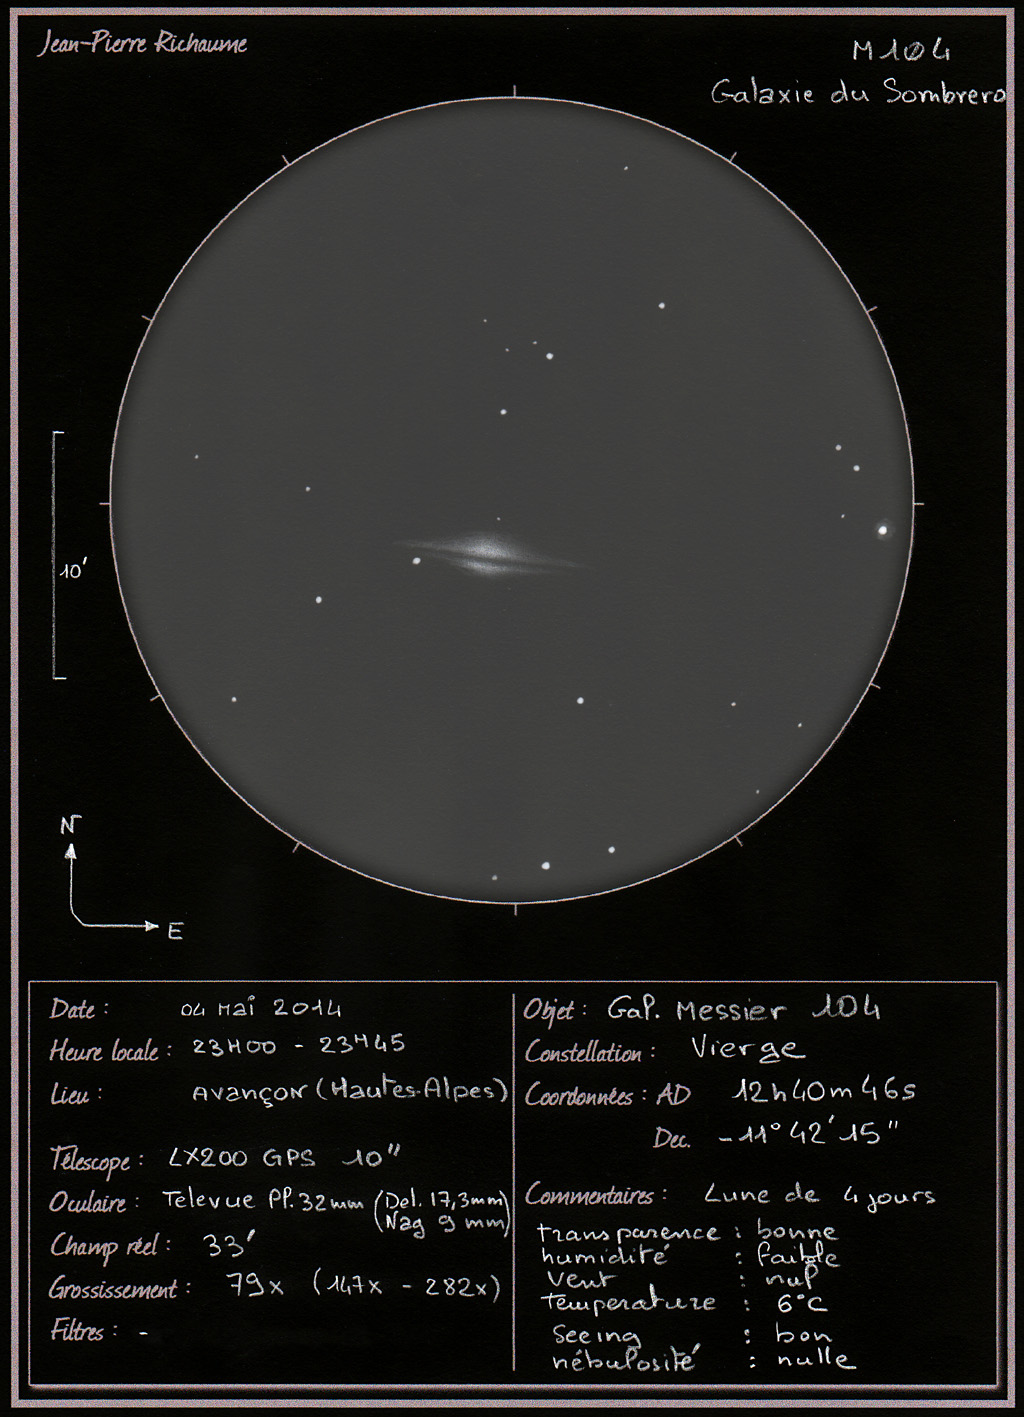 Jean-Pierre Richaume
M104
Galaxie du Sombrero
10'
N
E
Date : 04 Mai 2014
Heure locale : 23H00 - 23H45
Lieu : AVANÇON (Hautes-Alpes)
Télescope : LX200 GPS 10"
Oculaire : Televue Pl. 32mm (Del. 17,3mm)
Nag 9 mm)
Champ réel : 33'
Grossissement : 79x (147x - 282x)
Filtres : -
Objet : Gal. Messier 104
Constellation : Vierge
Coordonnées : AD 12h40m46s
Dec. -11° 42' 15"
Commentaires : Lune de 4 jours
transparence : bonne
humidité : faible
vent : nul
température : 6°C
seeing : bon
nébulosité : nulle